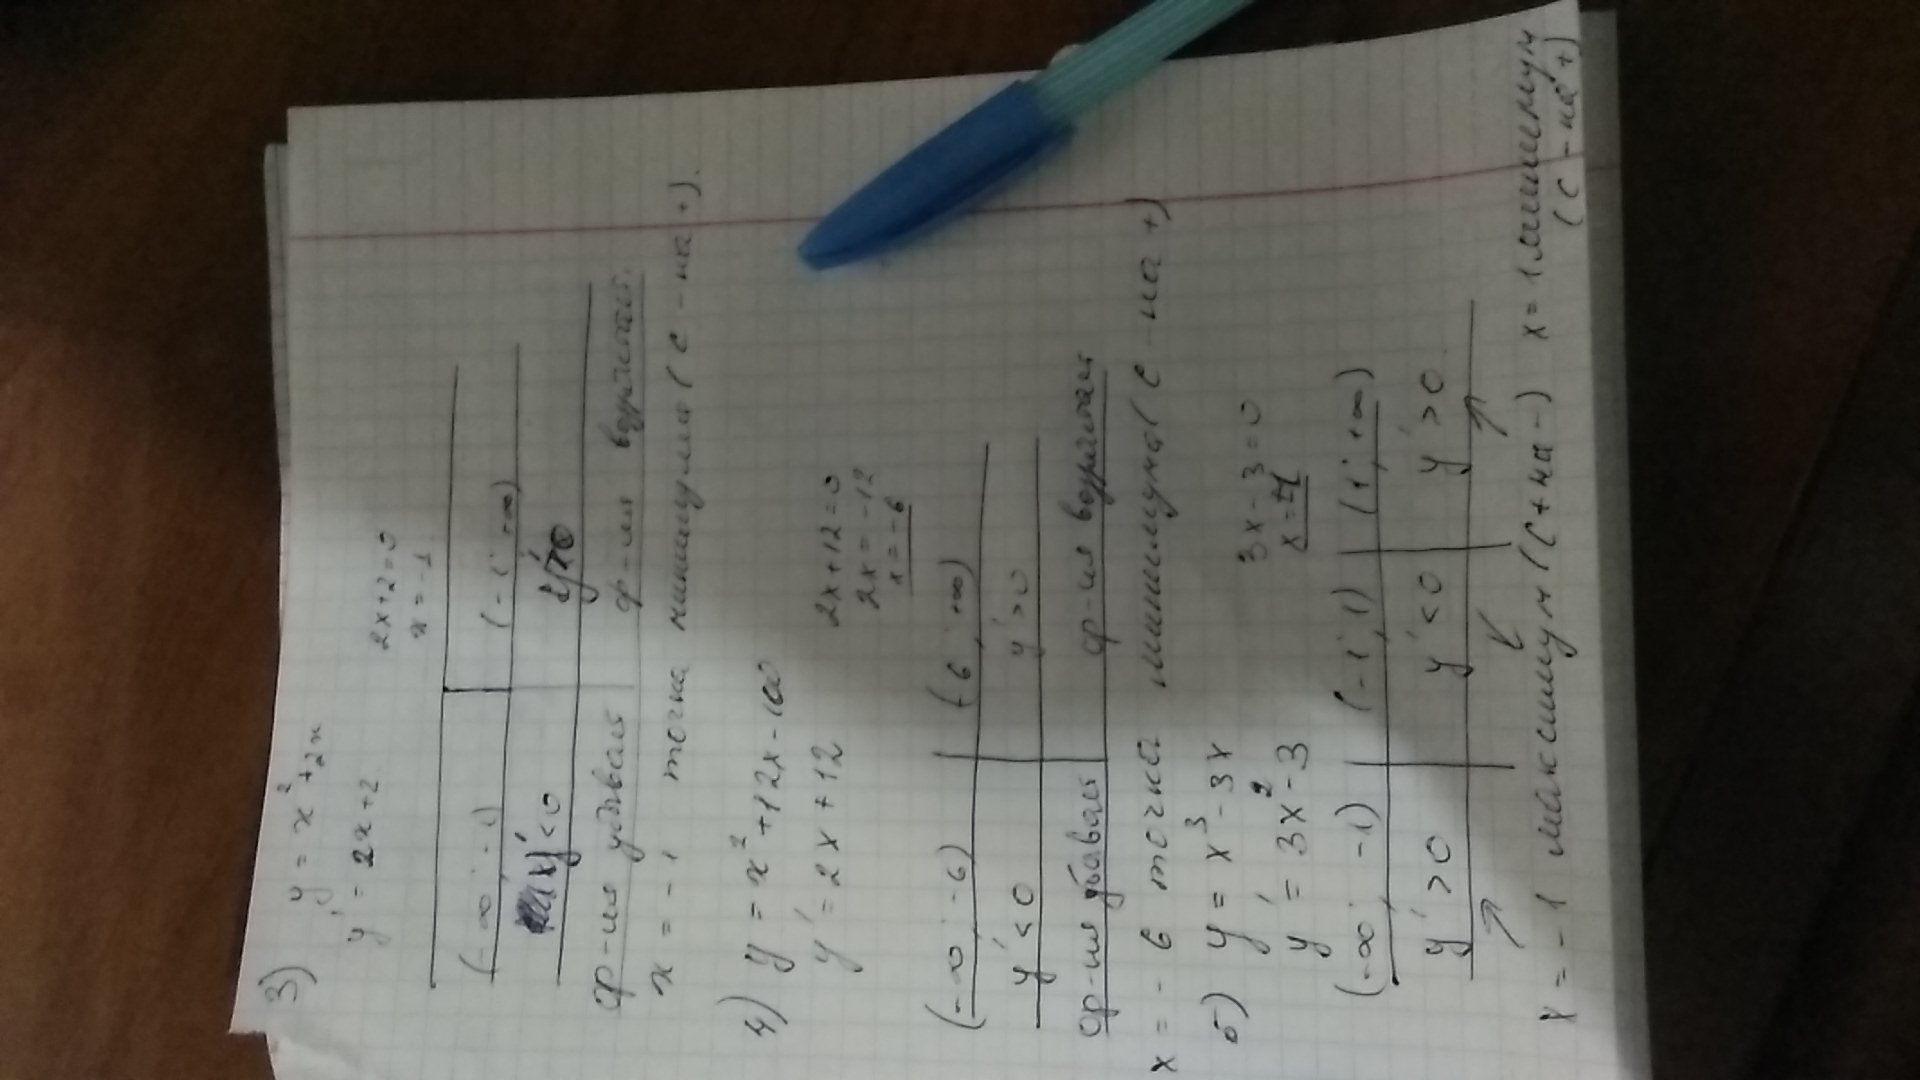 3) y = x² + 2x
y' = 2x + 2
2x + 2 = 0
x = -1
(-∞; -1) (-1; +∞)
y' < 0
ф-ия убывает ф-ия возрастает.
x = -1 точка минимума (с - на +).
4) y = x² + 12x - 100
y' = 2x + 12
2x + 12 = 0
2x = -12
x = -6
(-∞; -6) (-6; +∞)
y' < 0 y' > 0
ф-ия убывает ф-ия возрастает
x = -6 точка минимума (с - на +)
5) y = x³ - 3x
y' = 3x² - 3
3x - 3 = 0
x = ±1
(-∞; -1) (-1; 1) (1; +∞)
y' > 0 y' < 0 y' > 0
↗ ↙ ↗
x = -1 максимум (с + на -) x = 1 минимум
(с - на +)